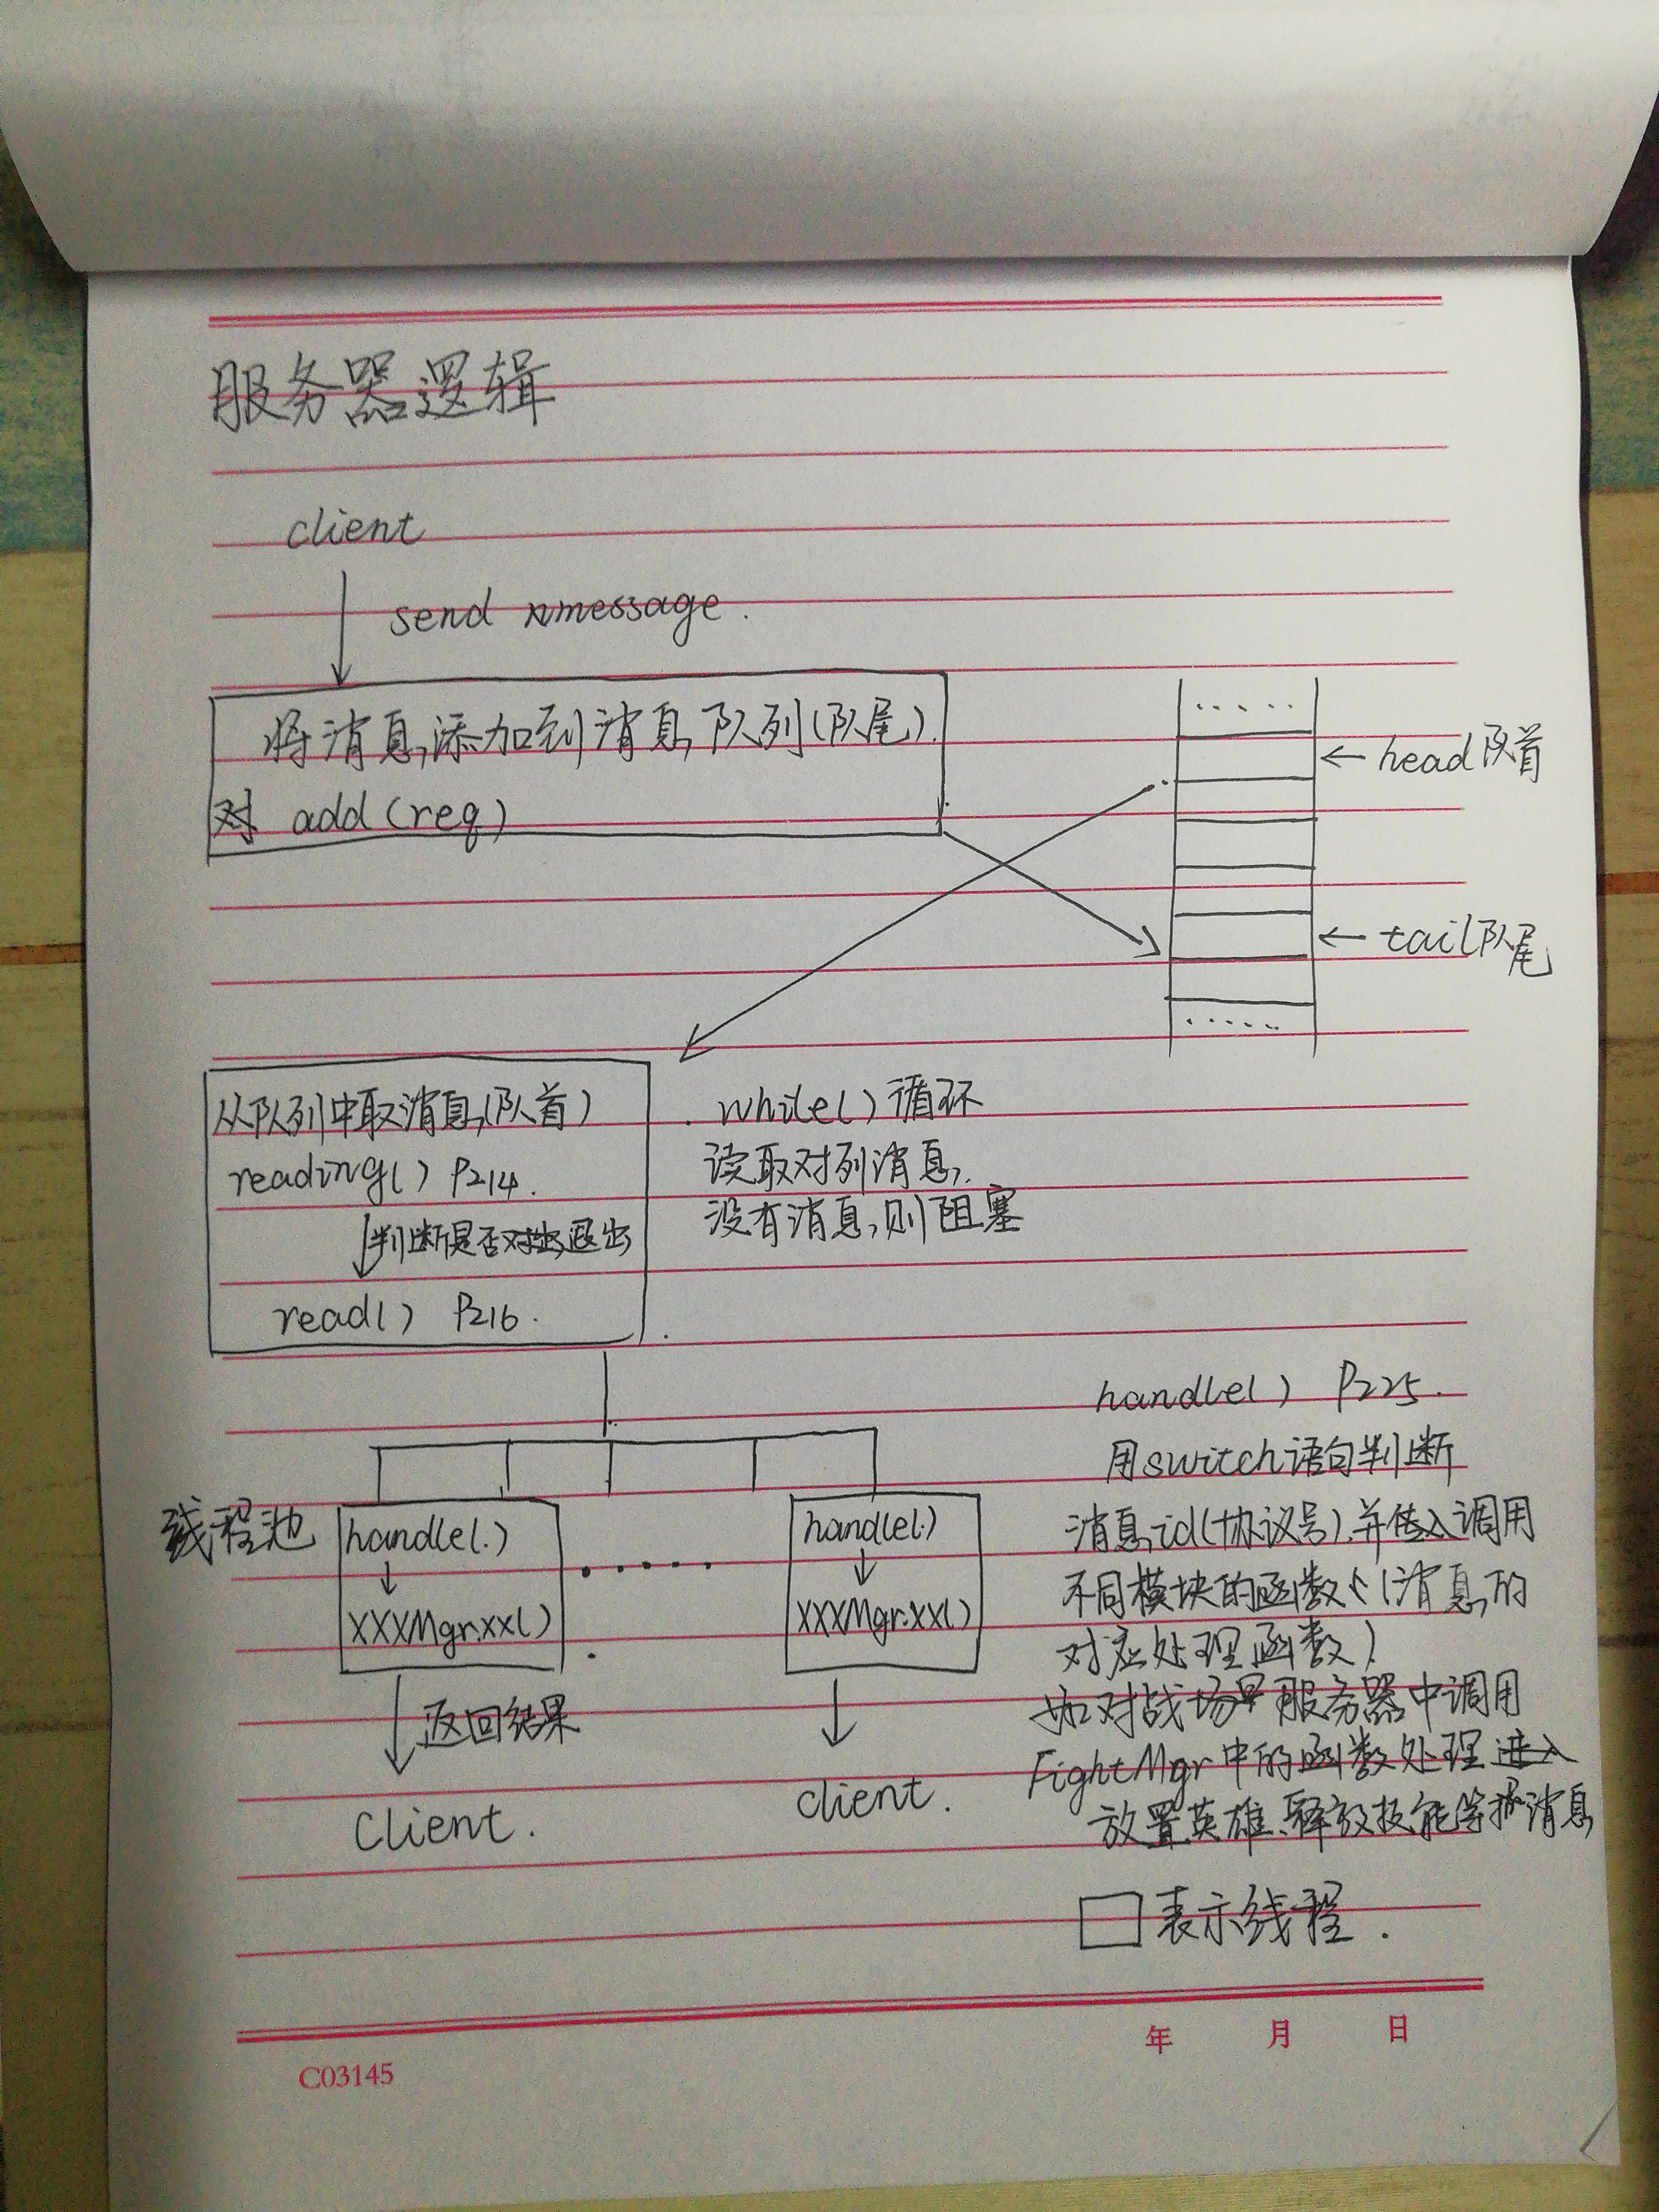 服务器逻辑
client
send message.
将消息添加到消息队列(队尾).
add(req)
head队首
tail队尾
从队列中取消息(队首)
reading() P214.
判断是否退出
read() P216.
while()循环
读取对列消息,
没有消息,则阻塞
handle() P225.
用switch语句判断
消息id(协议号),并调用
不同模块的函数(消息的
对应处理函数)
如对战场服务器中调用
FightMgr中的函数处理
放置英雄、释放技能等消息
线程池
handle()
XXXMgr.xx()
......
handle()
XXXMgr.xx()
返回结果
Client.
client.
表示线程.
年 月 日
C03145